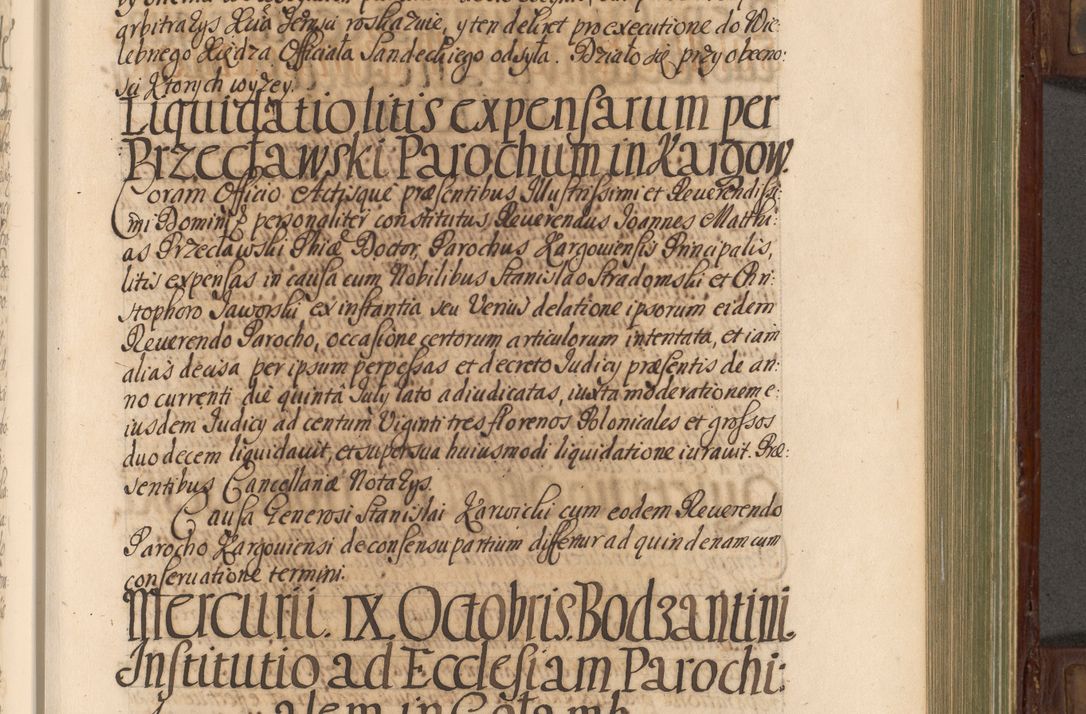 arbitralys Xcia Jemsci roskazuie, y ten dekret pro executione do Wie:
lebnego Xiędza Officiała Sandeckiego odsyła. Działo się przy obecno:
sci Ktorych wyzey.
Liquidatio litis expensarum per
Przecławski Parochum in Xargow.
Coram Officio Actisque præsentibus Illustrissimi et Reuerendissi:
mi Domini personaliter constitutus Reuerendus Joannes Matthi:
as Przecławski Phiæ Doctor, Parochus Xargouiensis Principalis,
litis expensas in causa cum Nobilibus Stanislao Stradomski et Chri:
stophoro Jaworski ex instantia seu verius delatione ipsorum eidem
Reuerendo Parocho, occasione certorum articulorum intentata, et iam
alias decisa per ipsum perpessas et decreto Judicy præsentis de an:
no currenti die quinta July lato adiudicatas, iuxta moderationem e:
iusdem Judicy ad centum Viginti tres florenos Polonicales et grossos
duodecem liquidauit, et super sua huiusmodi liquidatione iurauit. Præ:
sentibus Cancellariæ Notarys.
Causa Generosi Stanislai Karwicki cum eodem Reuerendo
Parocho Xargouiensi de consensu partium differtur ad quindenam cum
conseruatione termini.
Mercurii. IX. Octobris. Bodzantini.
Institutio ad Ecclesiam Parochi:
alem in